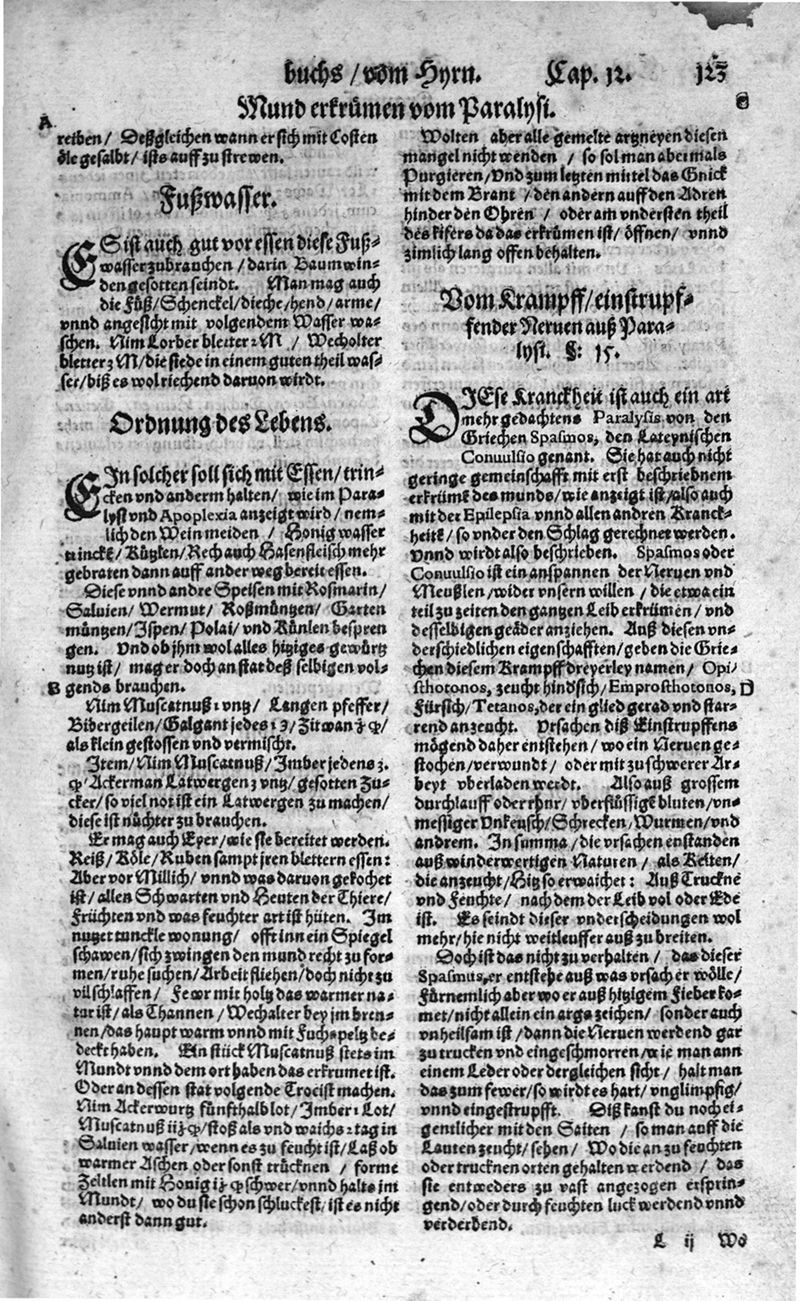 buchs / vom Hyrn. Cap. 12. 123
Mund erkrümen vom Paralysi.
A
reiben / Deßgleichen wann er sich mit Costen
öle gesalbt / ists auff zu strewen.
Fußwasser.
ES ist auch gut vor essen diese Fuß-
wasser zubrauchen / darin Baumwin-
den gesotten seindt. Man mag auch
die Füß / Schenckel / dieche / hend / arme /
vnnd angesicht mit volgendem Wasser wa-
schen. Nim Lorber bletter 2 M / Wecholter
bletter 3 M / die siede in einem guten theil was-
ser / biß es wolriechend daruon wirdt.
Ordnung des Lebens.
EIn solcher soll sich mit Essen / trin-
cken vnd anderm halten / wie im Para-
lysi vnd Apoplexia anzeigt wird / nem-
lich den Wein meiden / Honig wasser
trincke / Kützlen / Rech auch Hasenfleisch mehr
gebraten dann auff ander weg bereit essen.
Diese vnnd andre Speisen mit Roßmarin /
Saluien / Wermut / Roßmüntzen / Garten
müntzen / Ispen / Polai / vnd Künlen bespren
gen. Vnd ob jhm wol alles hitziges gewürtz
nutz ist / mag er doch an stat deß selbigen vol-
B gends brauchen.
Nim Muscatnuß 1 vntz / Langen pfeffer /
Bibergeilen / Galgant jedes 1 ʒ / Zitwan
als klein gestossen vnd vermischt.
Item / Nim Muscatnuß / Imber jedens 3.
Ackerman Latwergen 2 vntz / gesotten Zu-
cker / so viel not ist ein Latwergen zu machen /
diese ist nüchter zu brauchen.
Er mag auch Eyer / wie sie bereitet werden.
Reiß / Köle / Ruben sampt jren blettern essen:
Aber vor Millich / vnnd was daruon gekochet
ist / allen Schwarten vnd Heuten der Thiere /
Früchten vnd was feuchter art ist hüten. Im
nutzet tunckle wonung / offt inn ein Spiegel
schawen / sich zwingen den mund recht zu for-
men / ruhe suchen / Arbeit fliehen / doch nicht zu
vil schlaffen / Fewr mit holtz das warmer na-
tur ist / als Thannen / Wechalter bey im bren-
nen / das haupt warm vnnd mit Fuchspeltz be-
deckt haben. Ein stück Muscatnuß stets im
Mundt vnnd dem ort haben das erkrumet ist.
Oder an dessen stat volgende Trocist machen.
Nim Ackerwurtz fünfthalb lot / Imber 1 Lot /
Muscatnus ij / stoß als vnd waichs 1 tag in
Saluien wasser / wenn es zu feucht ist / Laß ob
warmer Aschen oder sonst trücknen / forme
Zeltlen mit Honig ij schwer / vnnd halts im
Mundt / wo du sie schon schluckest / ist es nicht
anderst dann gut.
C
Wolten aber alle gemelte artzneyen diesen
mangel nicht wenden / so sol man abermals
Purgieren / Vnd zum letzten mittel das Gnick
mit dem Brant / den andern auff den Adren
hinder den Ohren / oder am vndersten theil
des kifers da das erkrümen ist / öffnen / vnnd
zimlich lang offen behalten.
Vom Krampff / einstrupf-
fender Neruen auß Para-
lysi. §: 15.
DIEse Kranckheit ist auch ein art
mehrgedachtens Paralysis von den
Griechen Spasmos, den Lateynischen
Conuulsio genant. Sie hat auch nicht
geringe gemeinschafft mit erst beschriebnem
erkrümē des munds / wie anzeigt ist / also auch
mit der Epilepsia vnnd allen andren Kranck-
heitē / so vnder den Schlag gerechnet werden.
Vnnd wirdt also beschrieben. Spasmos oder
Conuulsio ist ein anspannen der Neruen vnd
Meußlen / wider vnsern willen / die etwa ein
teil zu zeiten den gantzen Leib erkrümen / vnd
desselbigen geäder anziehen. Auß diesen vn-
derschiedlichen eigenschafften / geben die Grie-
chen diesem Krampff dreyerley namen / Opi-
sthotonos, zeucht hindsich / Emprosthotonos, D
Fürsich / Tetanos, der ein glied gerad vnd star-
rend anzeucht. Vrsachen diß Einstrupffens
mögend daher entstehen / wo ein Neruen ge-
stochen / verwundt / oder mit zu schwerer Ar-
beyt vberladen werdt. Also auß grossem
durchlauff oder rhur / vberflüssigē bluten / vn-
messiger Vnkeusch / Schrecken / Wurmen / vnd
andrem. In summa / die vrsachen enstanden
auß winderwertigen Naturen / als Kelten /
die anzeucht / Hitz so erwaichet: Auß Truckne
vnd Feuchte / nach dem der Leib vol oder Ede
ist. Es seindt dieser vnderscheidungen wol
mehr / hie nicht weitleuffer auß zu breiten.
Doch ist das nicht zu verhalten / das dieser
Spasmus, er entstehe auß was vrsach er wölle /
Fürnemlich aber wo er auß hitzigem Fieber ko-
met / nicht allein ein args zeichen / sonder auch
vnheilsam ist / dann die Neruen werdend gar
zu trucken vnd eingeschmorren / wie man ann
einem Leder oder dergleichen sicht / halt man
das zum fewer / so wirdt es hart / vnglimpfig /
vnnd eingestrupfft. Diß kanst du noch ei-
gentlicher mit den Saiten / so man auff die
Lauten zeucht / sehen / Wo die an zu feuchten
oder trucknen orten gehalten werdend / das
sie entweders zu vast angezogen erspring-
gend / oder durch feuchten luck werdend vnnd
verderbend.
L ij Wo